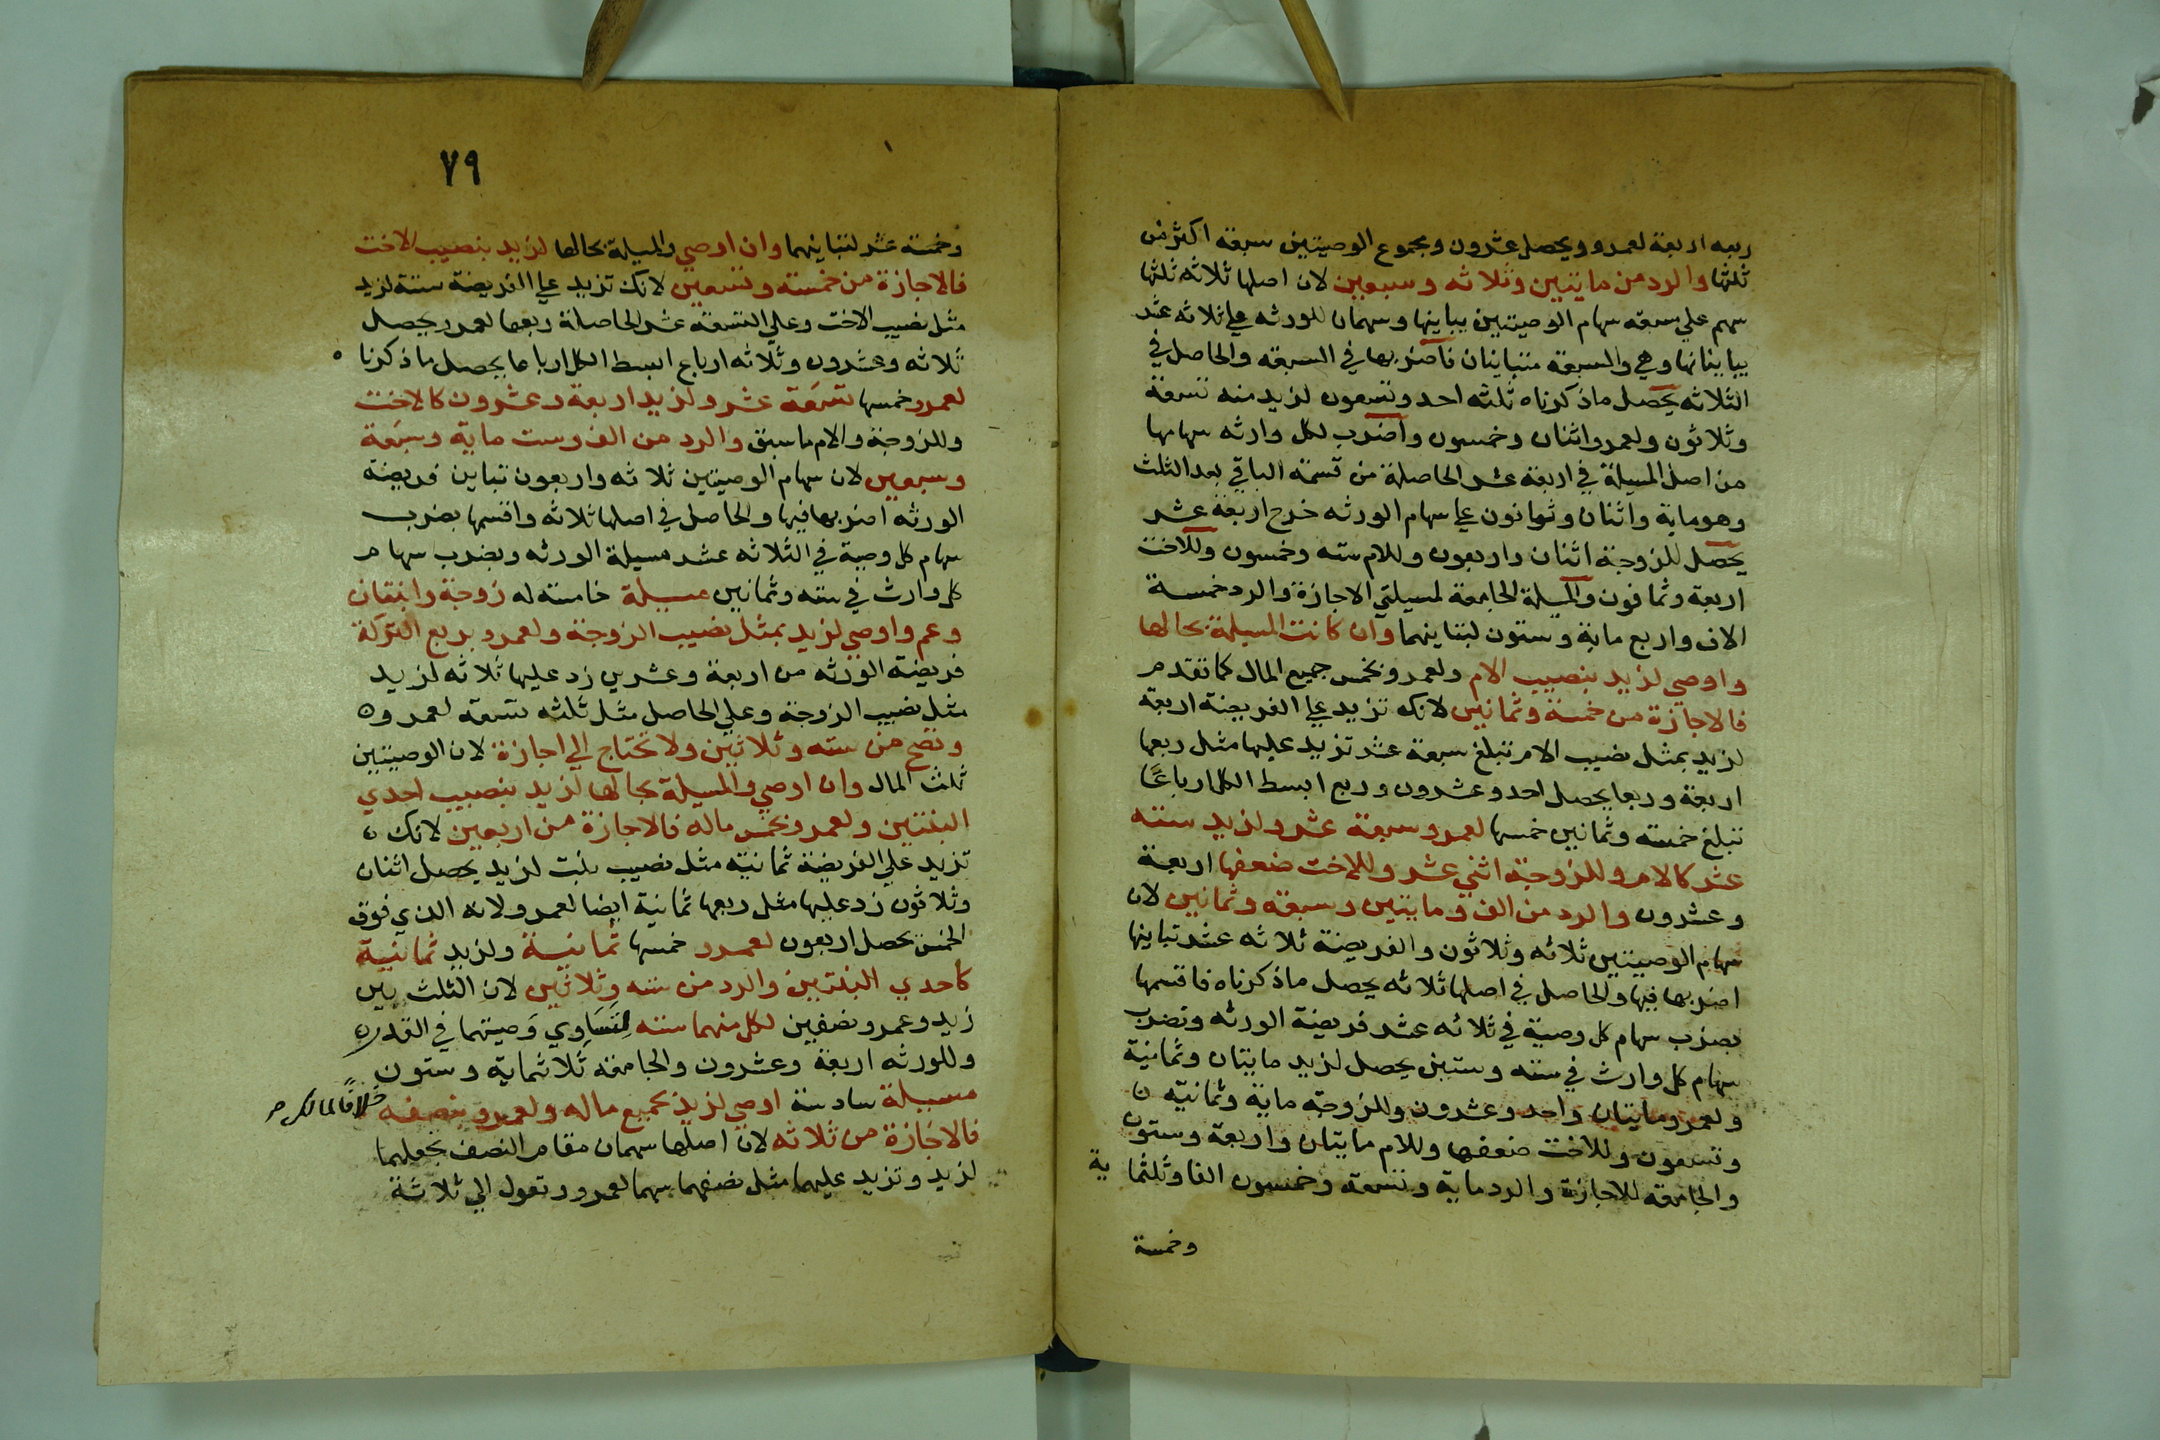 ربعه اربعة لعمرو ويحصل عشرون ومجموع الوصيتين سبعة اكثر من
ثلثها والرد من مايتين وثلاثه وسبعين لان اصلها ثلاثه ثلثها
سهم علي سبعه سهام الوصيتين يباينها وسهمان للورثه علي ثلاثه عشر
يباينانها وهي والسبعة متباينان فاضربها في السبعه والحاصل في
الثلاثه يحصل ماذكرناه ثلثه احد وتسعون لزيد منه تسعة
وثلاثون ولعمرو اثنان وخمسون واضرب لكل وارثه سهامها
من اصل المسيلة في اربعة عشر الحاصلة من قسمة الباقي بعد الثلث
وهو ماية واثنان وثمانون علي سهام الورثه خرج اربعة عشر
يحصل للزوجة اثنان واربعون وللام سته وخمسون وللاخت
اربعة وثمانون والمسلة الجامعة لمسيلتي الاجازة والرد خمسة
الاف واربع ماية وستون لتباينهما وان كانت المسيلة بحالها
واوصي لزيد بنصيب الام ولعمرو بخمس جميع المال كما تقدم
فالاجازة من خمسة وثمانين لانك تزيد علي الفريضة اربعة
لزيد بمثل نصيب الام تبلغ سبعة عشر تزيد عليها مثل ربعها
اربعة وربعا يحصل احد وعشرون وربع ابسط الكل ارباعًا
تبلغ خمسة وثمانين خمسها لعمرو سبعة عشر ولزيد ستة
عشر كالام وللزوجة اثني عشر وللاخت ضعفها اربعة
وعشرون والرد من الف ومايتين وسبعه وثمانين لان
سهام الوصيتين ثلاثه وثلاثون والفريضة ثلاثه عشر تباينها
اضربها فيها والحاصل في اصلها ثلاثه يحصل ماذكرناه فاقسمها
بضرب سهام كل وصية في ثلاثه عشر فريضة الورثه وتضرب
سهام كل وارث في سته وستين يحصل لزيد مايتان وثمانية
ولعمرو مايتان واحد وعشرون وللزوجة ماية وثمانيه
وتسعون وللاخت ضعفها وللام مايتان واربعة وستون
والجامعه للاجازة والرد ماية وتسعه وخمسون الفا وثلثما ية
وخمسة
٧٩
وخمسة عشر لتباينهما وان اوصي والمسيلة بحالها لزيد بنصيب الاخت
فالاجازة من خمسة وتسعين لانك تزيد علي الفريضة ستة لزيد
مثل نصيب الاخت وعلي التسعه عشر الحاصلة ربعها لعمرو يحصل
ثلاثه وعشرون وثلاثه ارباع ابسط الكل ارباعا يحصل ماذكرنا
لعمرو خمسها تسعة عشر ولزيد اربعة وعشرون كالاخت
وللزوجة والام ماسبق والرد من الف وست ماية وسبعة
وسبعين لان سهام الوصيتين ثلاثه واربعون تباين فريضة
الورثه اضربها فيها والحاصل في اصلها ثلاثه واقسمها بضرب
سهام كل وصية في الثلاثه عشر مسيلة الورثه وبضرب سهام
كل وارث في سته وثمانين مسيلة خامسة له زوجة وابنتان
وعم واوصي لزيد بمثل نصيب الزوجة ولعمرو بربع التركة
فريضة الورثه من اربعة وعشرين زد عليها ثلاثه لزيد
مثل نصيب الزوجة وعلي الحاصل مثل ثلثه تسعة لعمرو
وتصح من سته وثلاثين ولا تحتاج الي اجازة لان الوصيتين
ثلث المال وان اوصي والمسيلة بحالها لزيد بنصيب احدي
البنتين ولعمرو بخمس ماله فالاجازة من اربعين لانك
تزيد علي الفريضة ثمانية مثل نصيب بنت لزيد يحصل اثنان
وثلاثون زد عليها مثل ربعها ثمانية ايضا لعمرو لانه الذي فوق
الخمس يحصل اربعون لعمرو خمسها ثمانية ولزيد ثمانية
كاحدي البنتين والرد من سته وثلاثين لان الثلث بين
زيد وعمرو نصفين لكل منهما سته لتساوي وصيتهما في القدر
وللورثه اربعة وعشرون والجامعه ثلاثماية وستون
مسيلة سادسة اوصي لزيد بجميع ماله ولعمرو بنصفه خلافًا لمالك
فالاجازة من ثلاثه لان اصلها سهمان مقام النصف تجعلهما
لزيد وتزيد عليهما مثل نصفهما سهما لعمرو وتعول الي ثلاثة